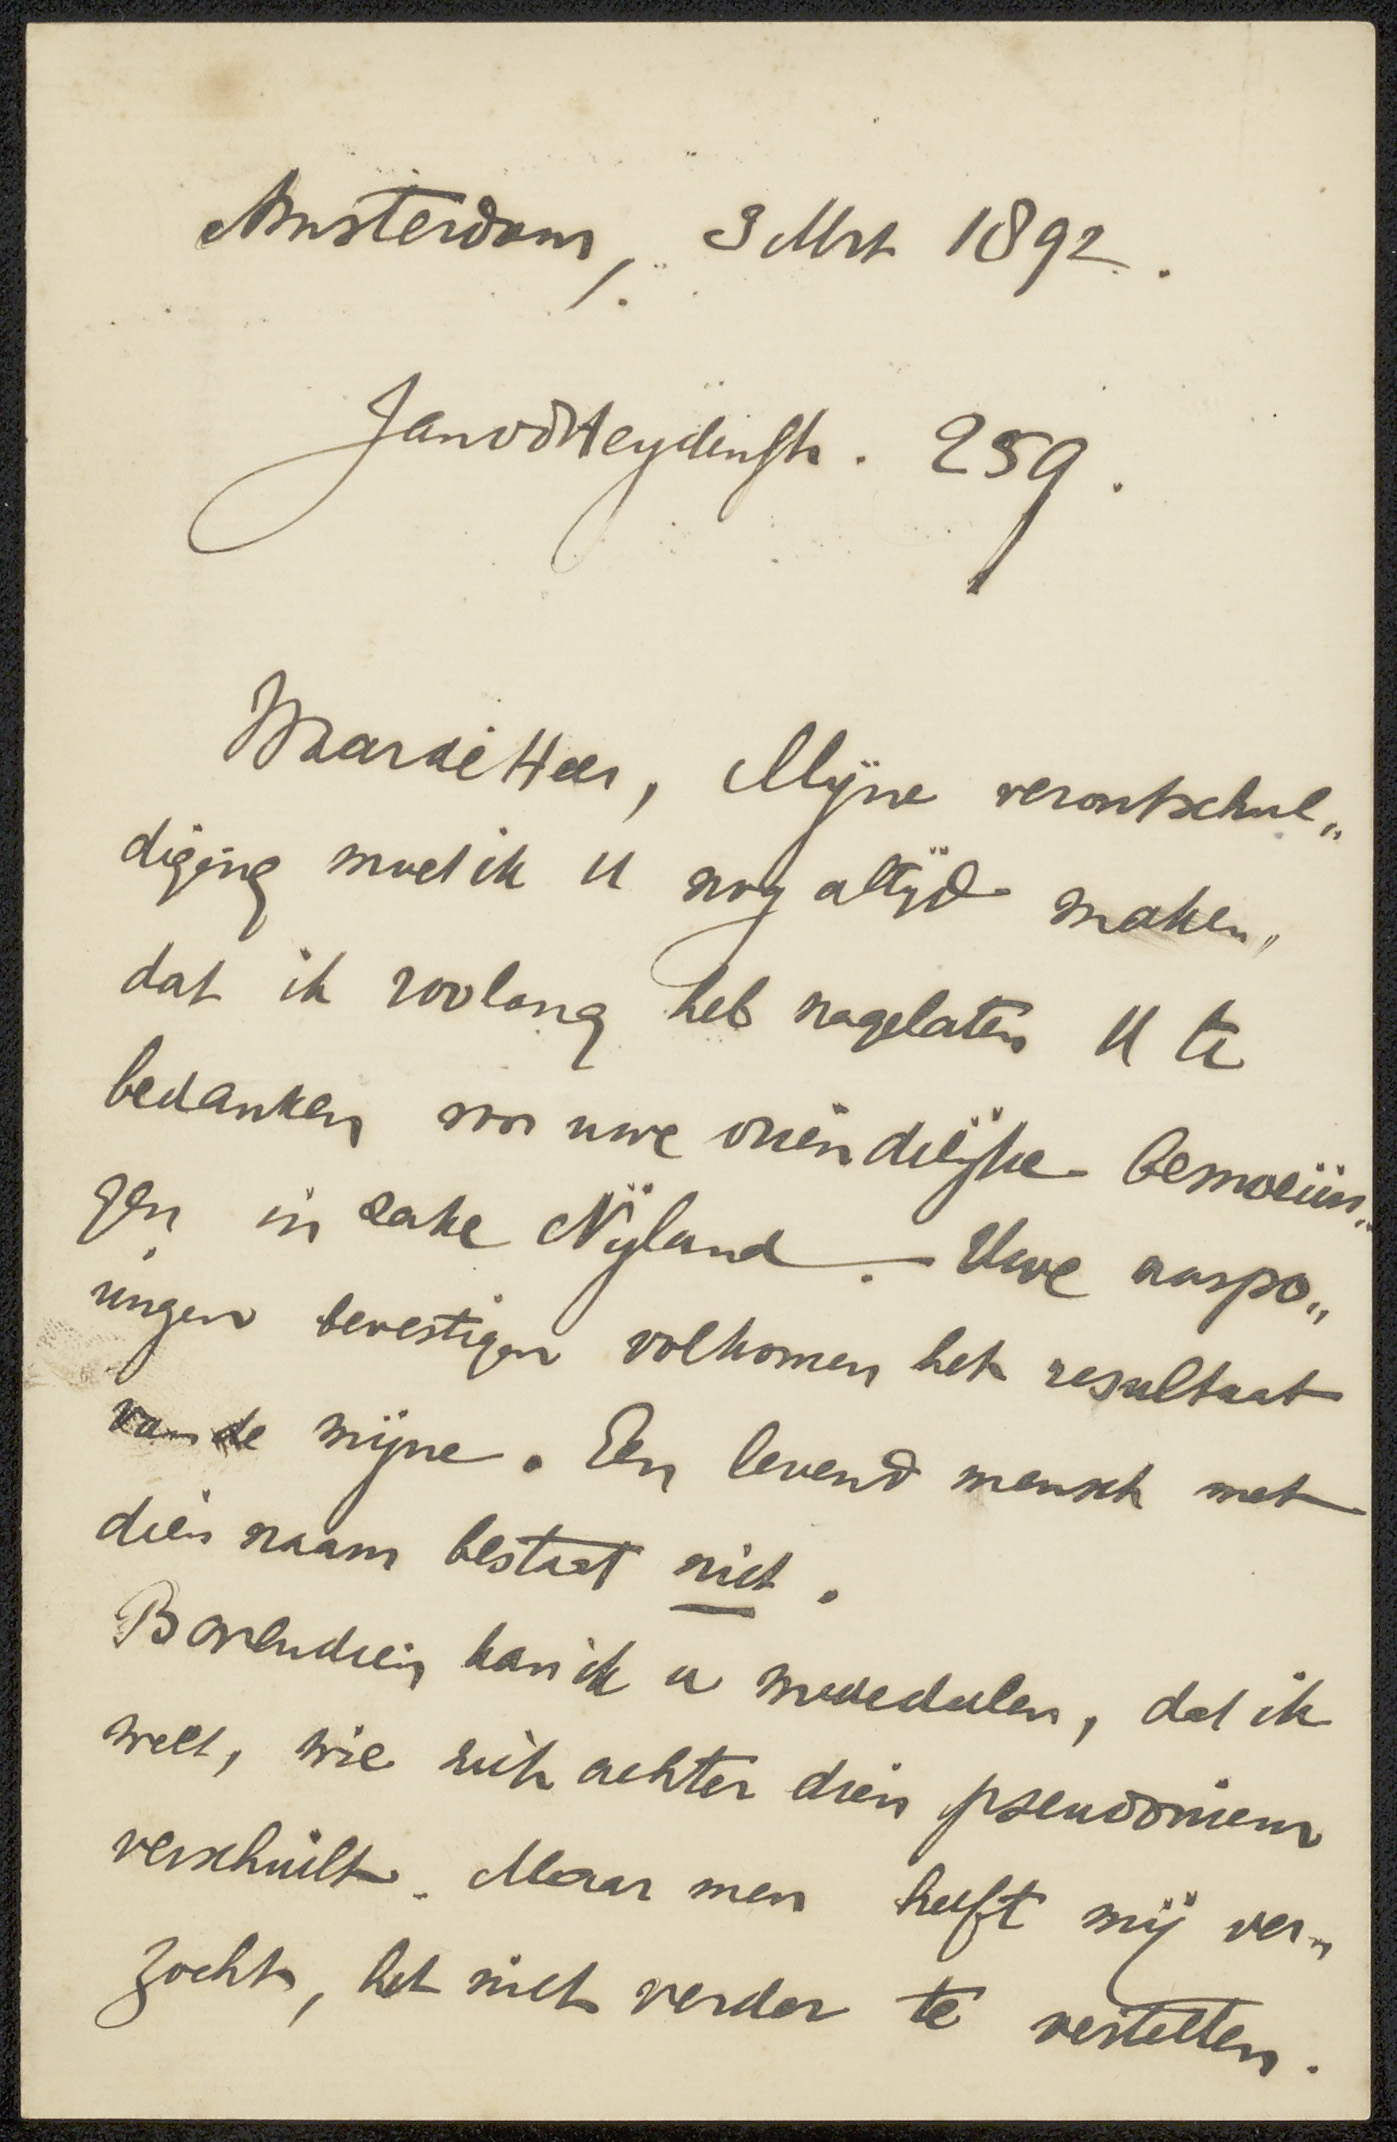 Amsterdam, 3 Mrt 1892.
Jan v d Heydenstr. 259.
Waarde Heer, Mijne verontschul„
diging moet ik U nog altijd maken,
dat ik zoolang heb nagelaten U te
bedanken voor uwe vriendelijke bemoeiin„
gen in zake Nijland. – Uwe naspo„
ringen bevestigen volkomen het resultaat
van de mijne. Een levend mensch met
dien naam bestaat niet.
Bovendien kan ik u mededeelen, dat ik
weet, wie zich achter dien pseudoniem
verschuilt. Maar men heeft mij ver„
zocht, het niet verder te vertellen.